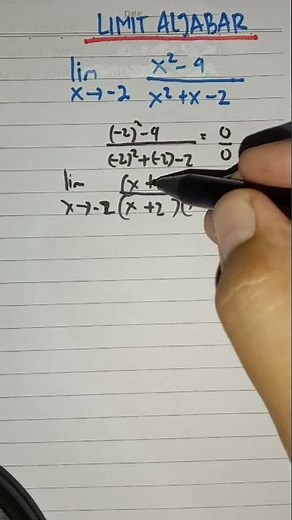 LIMIT ALJABAR
lim x→-2 (x²-4)/(x²+x-2)
((-2)²-4)/((-2)²+(-2)-2) = 0/0
lim x→-2 (x+/(x+2)(